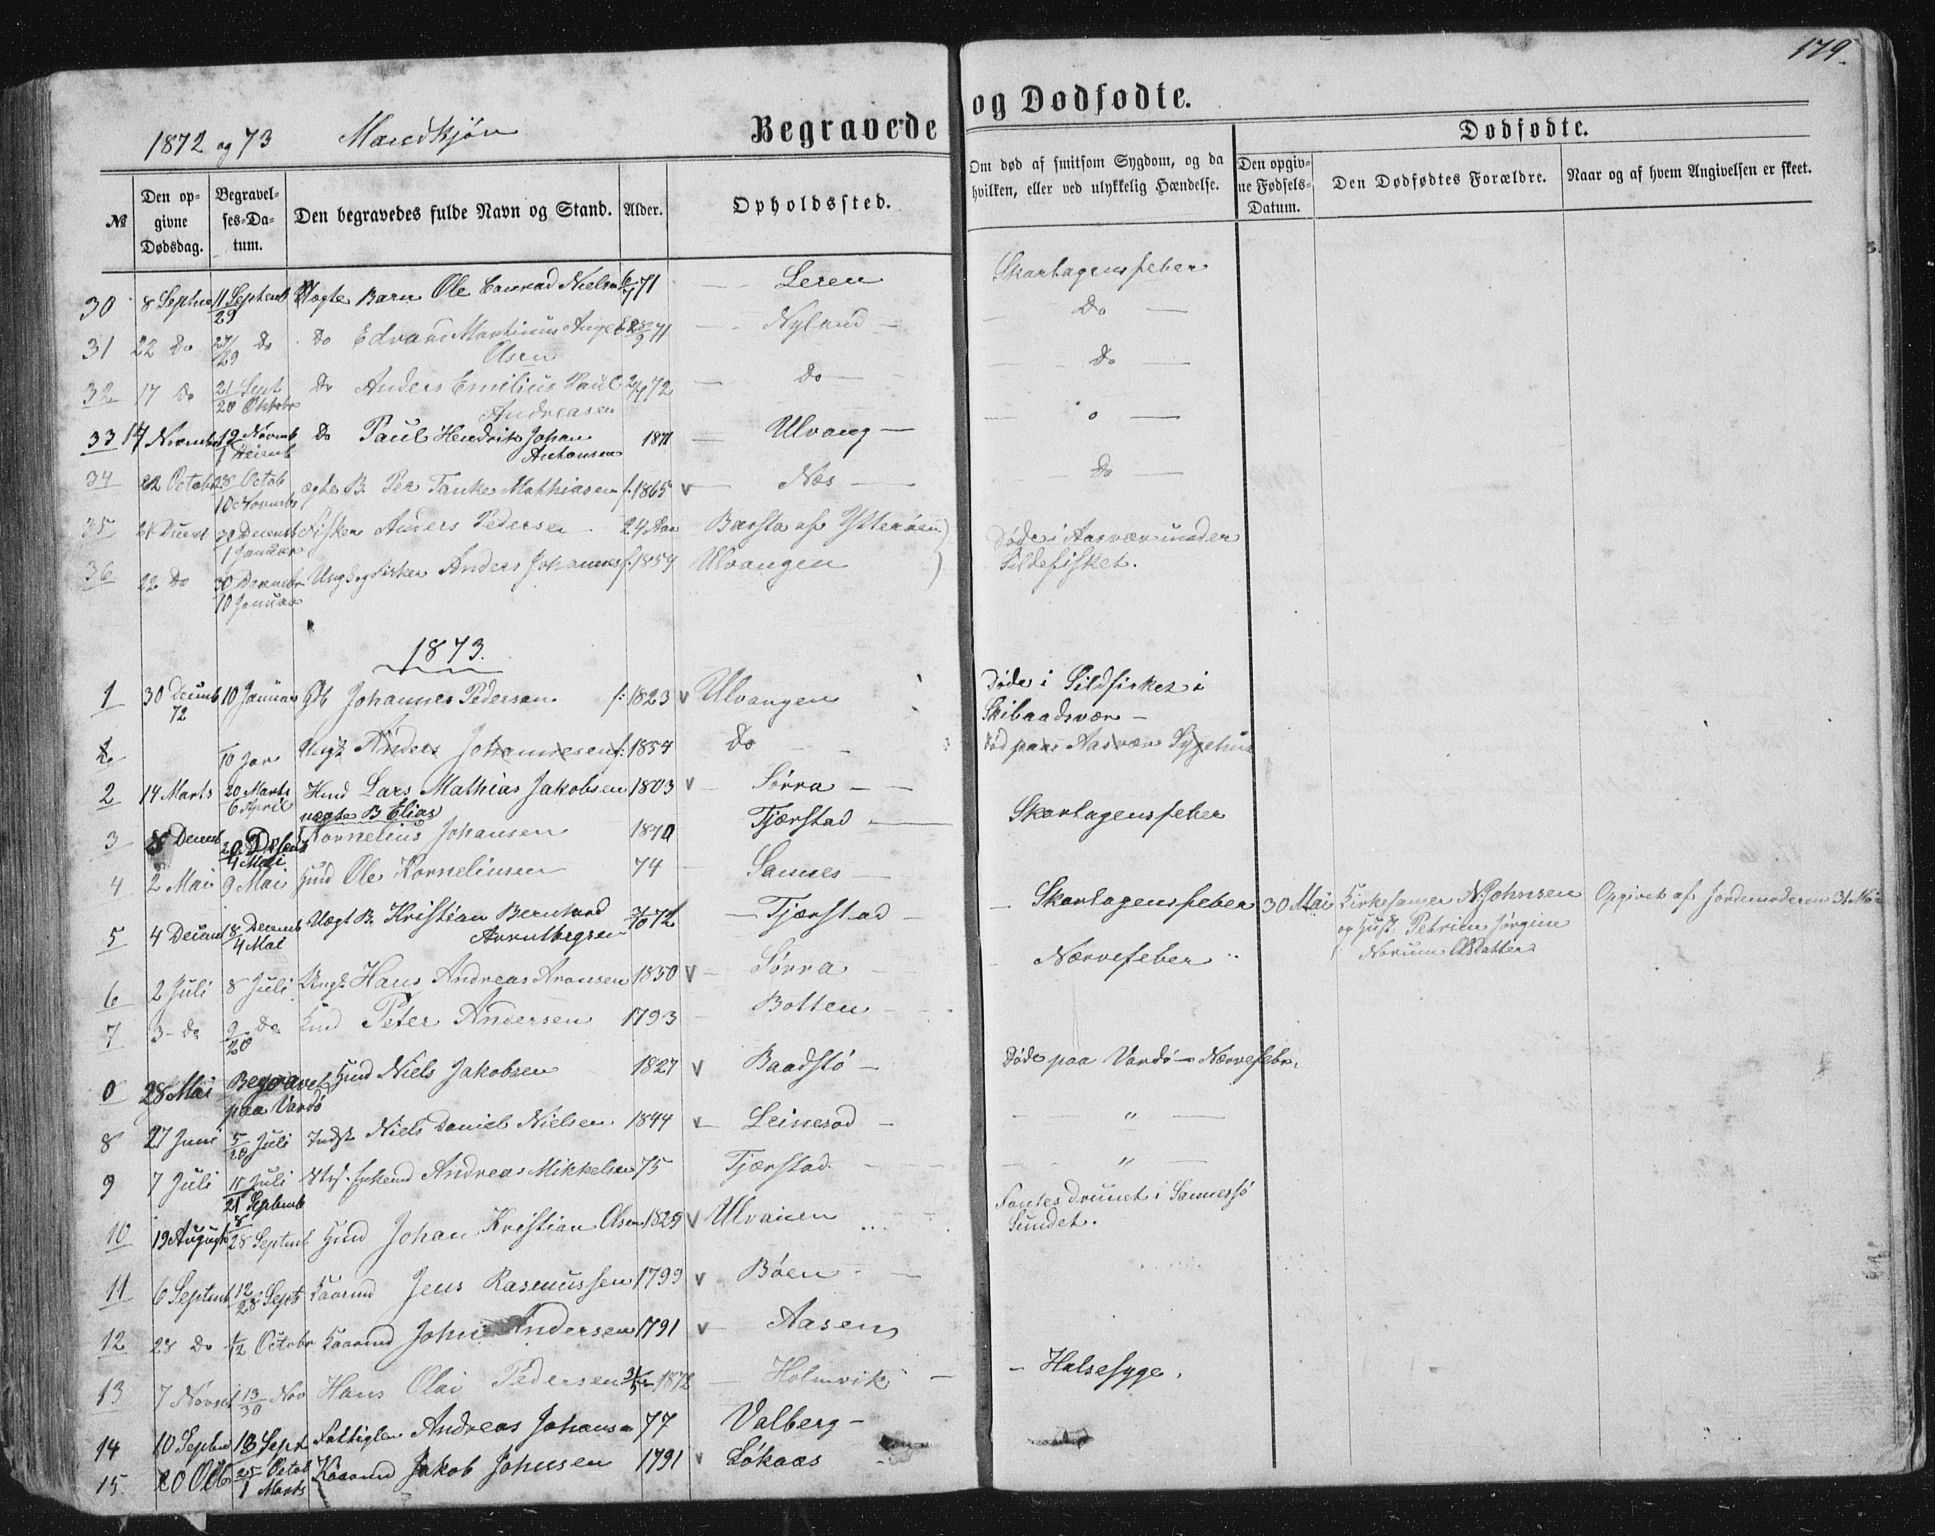 179.
1872 og 73 Mandkjøn
Begravede og Dødfødte.
№
Den opgivne Dødsdag.
Begravelses-Datum.
Den begravedes fulde Navn og Stand.
Alder.
Opholdssted.
Om død af smitsom Sygdom, og da hvilken, eller ved ulykkelig Hændelse.
Dødfødte.
Den opgivne Fødsels-Datum.
Den Dødfødtes Forældre.
Naar og af hvem Angivelsen er skeet.
30 8 Septbr 11 Septemb 29 Ægte Barn Ole Conrad Nielsen 71 Leren Skarlagensfeber
31 22 Do 27/29 Do Do Edvard Martinus Olsen 71 Nyland Do
32 17 Do 21 Sept 20 Oktobr Do Anders Emilius Paul Andreasen 72 Do Do
33 14 Novemb 19 Novmb 1 Do Paul Hendrik Johan Antonsen 1871 Ulvang
34 22 Octobr 28 Octob 10 Novmbr ægte B. Per Tanke Mathiasen f. 1865 v Næs Do
35 21 Decmb 30 Decemb 1 Januar Fisker Anders Pedersen 24 Aar Barsta af Ytterøen Døde i Aasvær under
36 22 Do 30 Decembr 10 Januar Ungk og Fisker Anders Johannes f. 1854 Ulvangen Sildefisket.
1873.
1 30 Decmb 72 10 Januar Gdb Johannes Pedersen f: 1823 v Ulvangen Døde i Sildfisket i Skibaadsvær –
2 10 Jan Ungk Anders Johannesen f: 1854 Do Død paa Aasvær Sygehus
2 14 Marts 20 Marts 6 April Kmd Lars Mathias Jakobsen 1803 v Sørra
3 8 Decmb 20 Desemb 4 Mai uægte B Elias Kornelius Johansen 1870 Tjærstad Skarlagensfeber
4 2 Mai 9 Mai Hmd Ole Kornelinsen 74 Sannes
5 4 Decemb 18 Decemb 4 Mai Uægt B. Kristian Bernhard 72 Tjærstad Skarlagensfeber 30 Mai Kirkesanger N. Johnsen og Hust: Petrine Jørgine Norum Olsdatter Opgivet af Jordemoderen 31 Mai
6 2 Juli 8 Juli Ungk Hans Andreas Aronsen 1850 v Sørra Nervefeber
7 3 Do 9/20 Do Kmd Peter Andersen 1793 Botten
0 28 Mai Begravet paa Vardø Hmd Niels Jakobsen 1827 v Baadstø Døde paa Vardø – Nervefebr.
8 27 Juni 5/20 Juli Indst Niels Daniel Nielsen 1844 v Leinesod "
9 7 Juli 11 Juli 21 Septemb Andreas Mikkelsen 75 Tjærstad "
10 19 August 8/28 Septmb Hmd Johan Kristian Olsen 1825 v Ulvanen drunet i Sannessø Sundet.
11 6 Septmb 12/28 Sept Kaarmd Jens Rasmussen 1799 v Bøen
12 28 Do 1/12 Octobr Kaarmd John Andersen 1791 v Aasen
13 7 Novmb 13/30 Nov Hans Olai Pedersen 1872 Holmvik – Halsesyge.
14 10 Septbr 18 Sept Fattiglem Andreas Johansen 77 Valberg –
15 20 Octb 25 Octob 1 Marts Kaarmd Jakob Johnsen 1791 v Løkaas